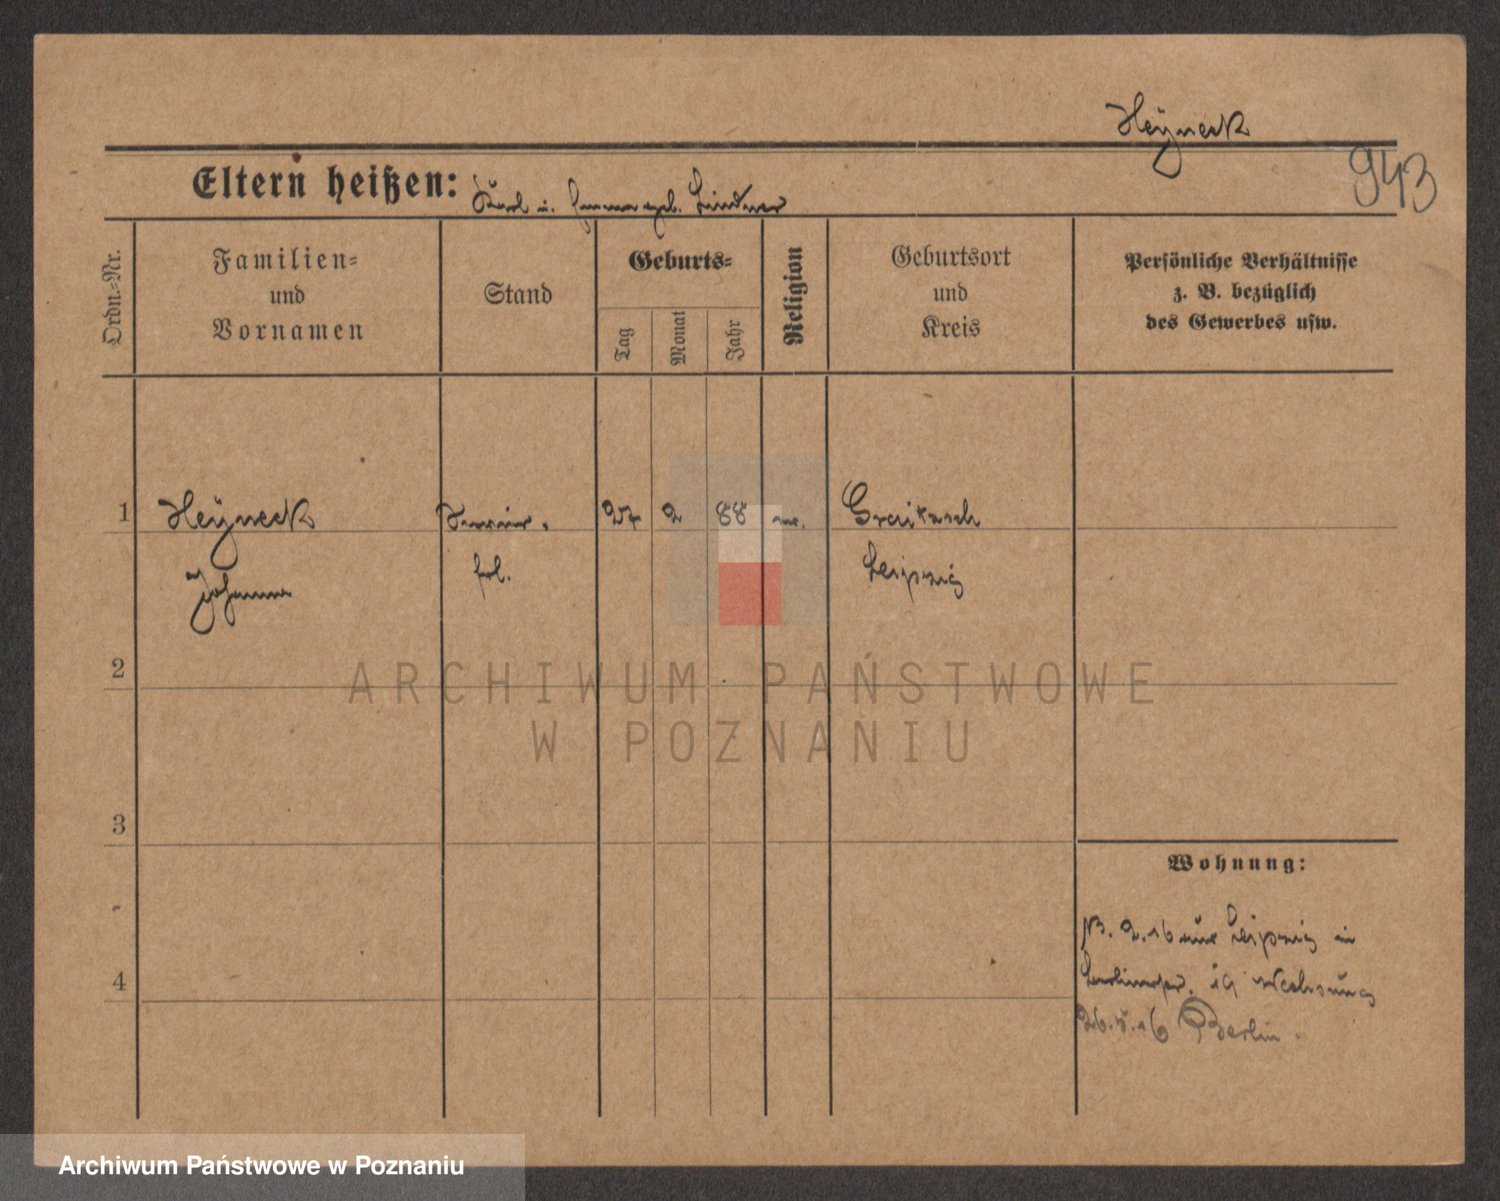 Heyneck
943
Eltern heißen: Karl u. geb. Lindner
Ordn.-Nr.
Familien-
und
Vornamen
Stand
Geburts-
Tag
Monat
Jahr
Religion
Geburtsort
und
Kreis
Persönliche Verhältnisse
z. B. bezüglich
des Gewerbes usw.
1
Heyneck
Johanna
27 2 88
Groitzsch
Leipzig
2
3
4
Wohnung:
13. 2. 16 aus Leipzig in
19 Wohnung
26. 5. 16 Berlin.
ARCHIWUM PAŃSTWOWE
W POZNANIU
Archiwum Państwowe w Poznaniu